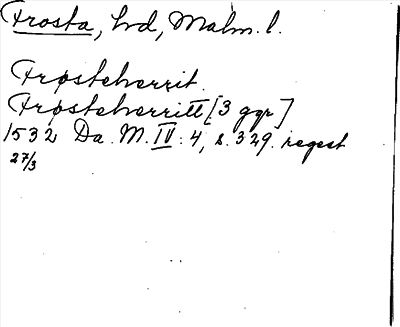 Frosta, hd, Malm. l.
Frøsteherrit.
Frøsteherritt [3 ggr]
1532 Da. M. IV: 4, s. 329. regest
27/3